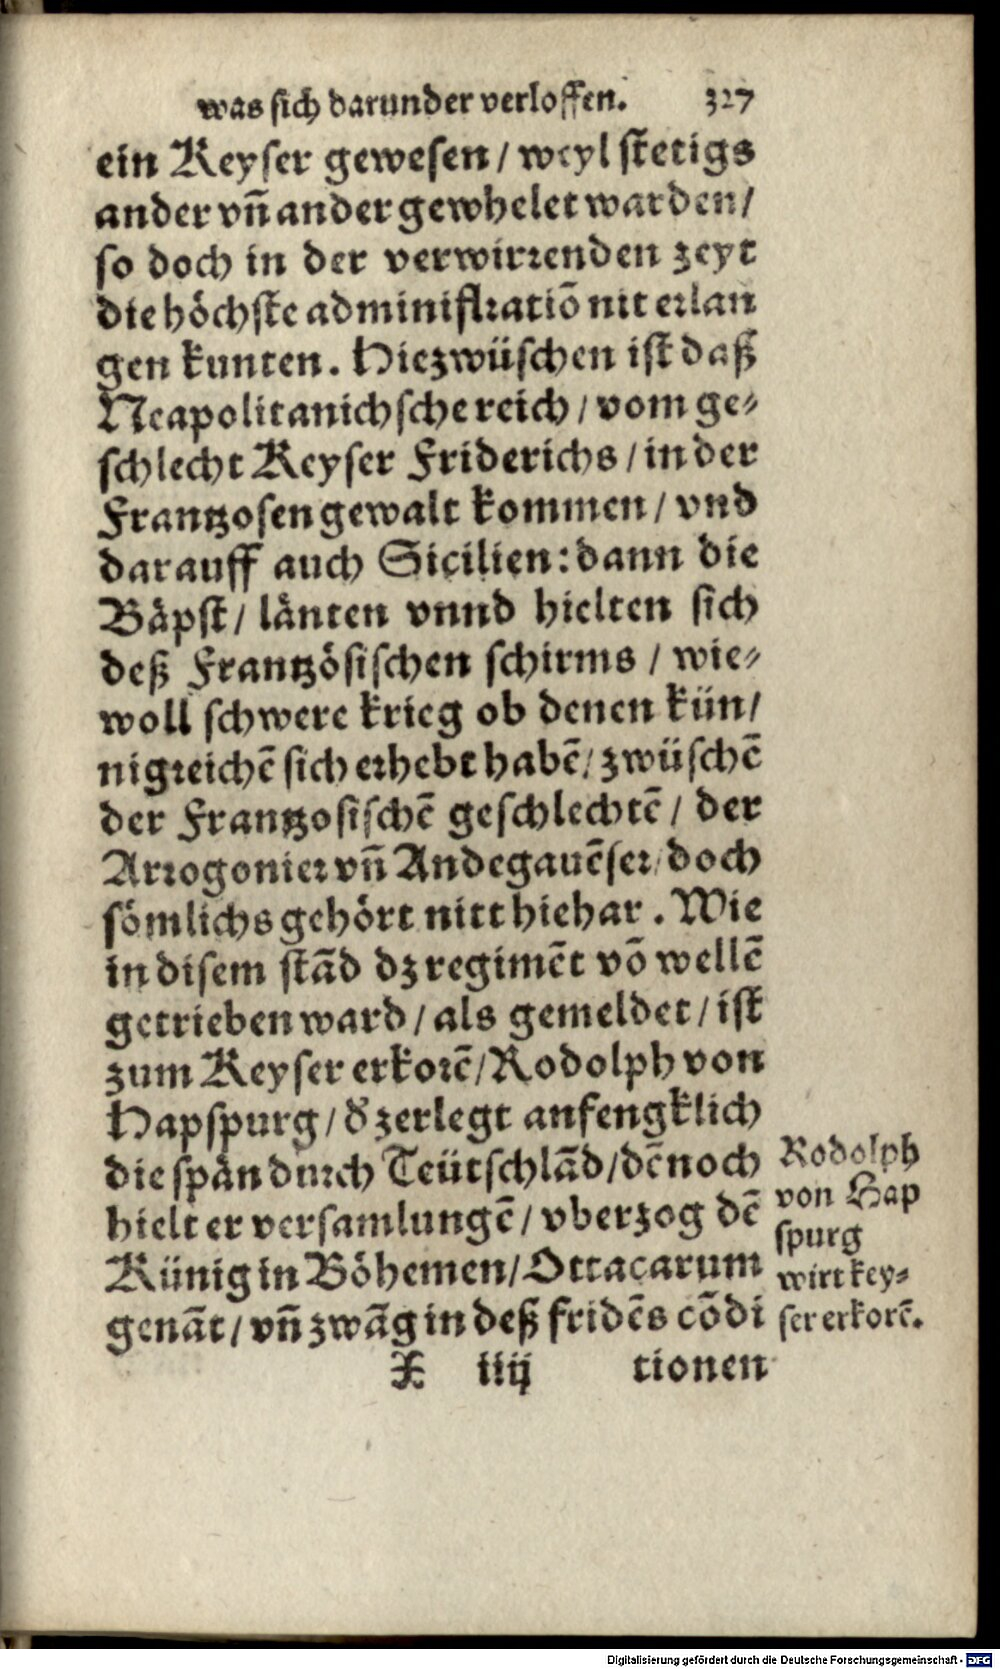 was sich darunder verloffen. 327
ein Keyser gewesen / weyl stetigs
ander vñ ander gewhelet warden /
so doch in der verwirrenden zeyt
die höchste administratiõ nit erlan
gen kunten. Hiezwüschen ist daß
Neapolitanichsche reich / vom ge⸗
schlecht Keyser Friderichs / in der
Frantzosen gewalt kommen / vnd
darauff auch Sicilien: dann die
Bäpst / länten vnnd hielten sich
deß Frantzösischen schirms / wie⸗
woll schwere krieg ob denen kün /
nigreichẽ sich erhebt habẽ / zwüschẽ
der Frantzosischẽ geschlechtẽ / der
Arrogonier vñ Andegauẽser / doch
sömlichs gehört nitt hiehar. Wie
in disem stãd dz regimẽt võ wellẽ
getrieben ward / als gemeldet / ist
zum Keyser erkorẽ / Rodolph von
Hapspurg / d̃ zerlegt anfengklich
die spän durch Teütschlãd / dẽnoch
hielt er versamlungẽ / vberzog dẽ
Künig in Böhemen / Ottacarum
genãt / vñ zwãg in deß fridẽs cõdi
Rodolph
von Hap
spurg
wirt key⸗
ser erkorẽ.
X iiij tionen
Digitalisierung gefördert durch die Deutsche Forschungsgemeinschaft - DFG